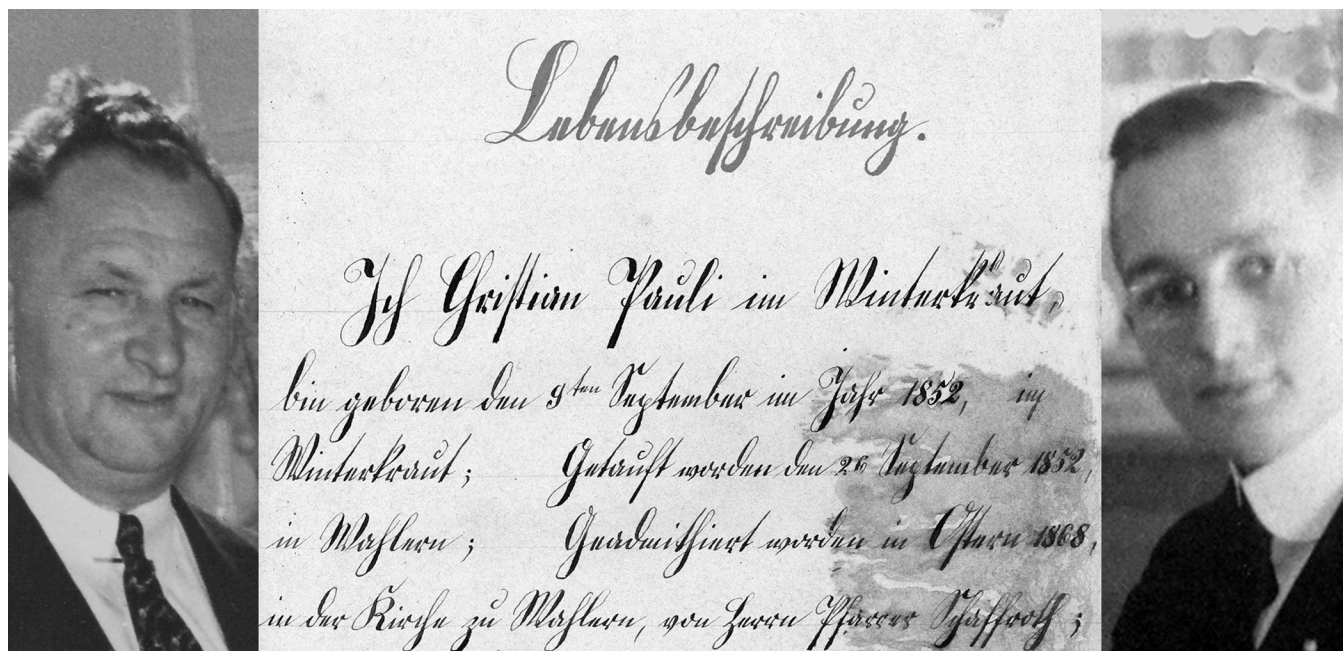 Lebensbeschreibung.
Ich Christian Pauli im Winterkraut,
bin geboren den 9ten September im Jahr 1852, im
Winterkraut; Getauft worden den 26 September 1852,
in Wahlern; Geadmithiert worden in Ostern 1868,
in der Kirche zu Wahlern, von Herrn Pfarrer Schaffroth;